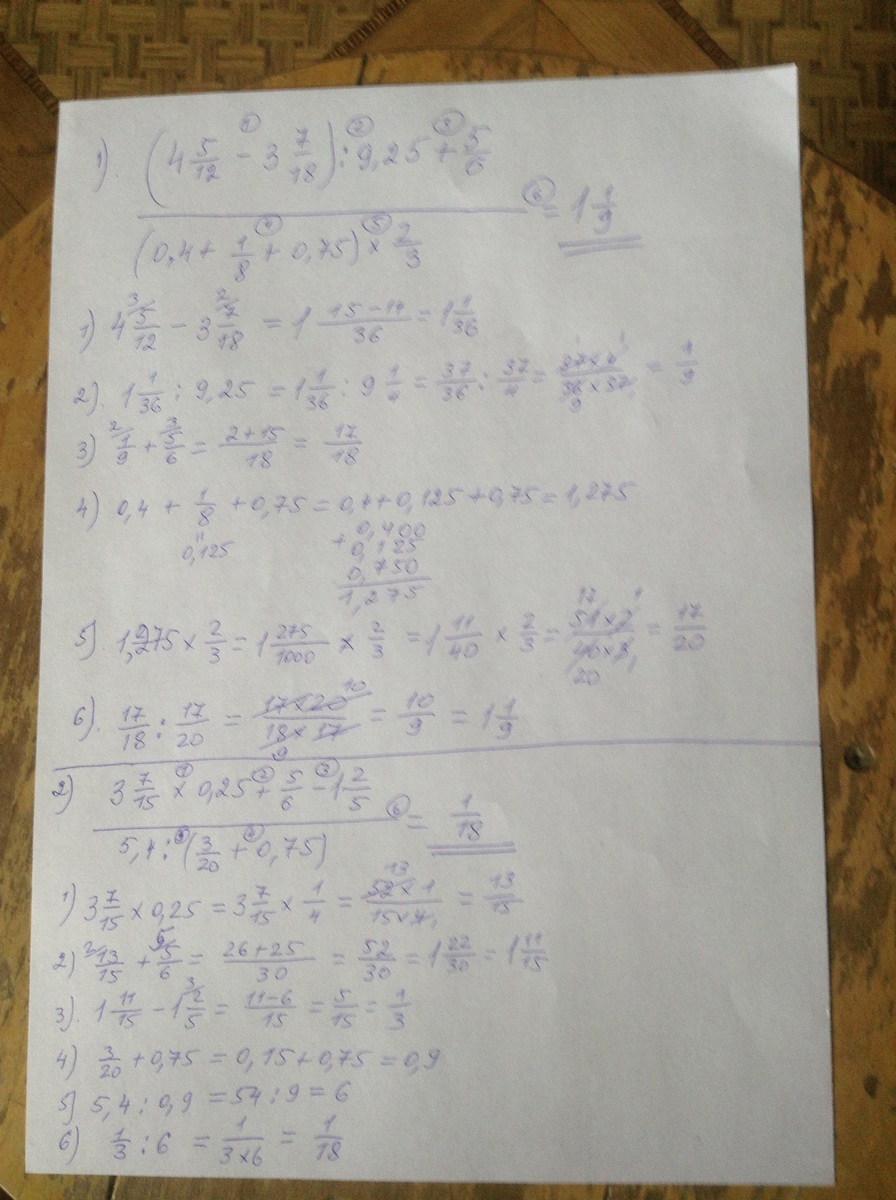 1). (4 5/12 - 3 7/18) : 9,25 + 5/6
= 1 1/9
(0,4 + 1/8 + 0,75) × 2/3
1) 4 5/12 - 3 7/18 = 1 (15-14)/36 = 1 1/36
2). 1 1/36 : 9,25 = 1 1/36 : 9 1/4 = 37/36 : 37/4 = (37×4)/(36×37) = 1/9
3) 1/9 + 5/6 = (2+15)/18 = 17/18
4) 0,4 + 1/8 + 0,75 = 0,4+0,125+0,75 = 1,275
0,125
+ 0,400
0,125
0,750
1,275
5). 1,275 × 2/3 = 1 275/1000 × 2/3 = 1 11/40 × 2/3 = (51×2)/(40×3) = 17/20
6). 17/18 : 17/20 = (17×20)/(18×17) = 10/9 = 1 1/9
2) 3 7/15 × 0,25 + 5/6 - 1 2/5
= 1/18
5,4 : (3/20 + 0,75)
1) 3 7/15 × 0,25 = 3 7/15 × 1/4 = (52×1)/(15×4) = 13/15
2) 13/15 + 5/6 = (26+25)/30 = 52/30 = 1 22/30 = 1 11/15
3). 1 11/15 - 1 2/5 = (11-6)/15 = 5/15 = 1/3
4) 3/20 + 0,75 = 0,15+0,75 = 0,9
5) 5,4 : 0,9 = 54 : 9 = 6
6) 1/3 : 6 = 1/(3×6) = 1/18